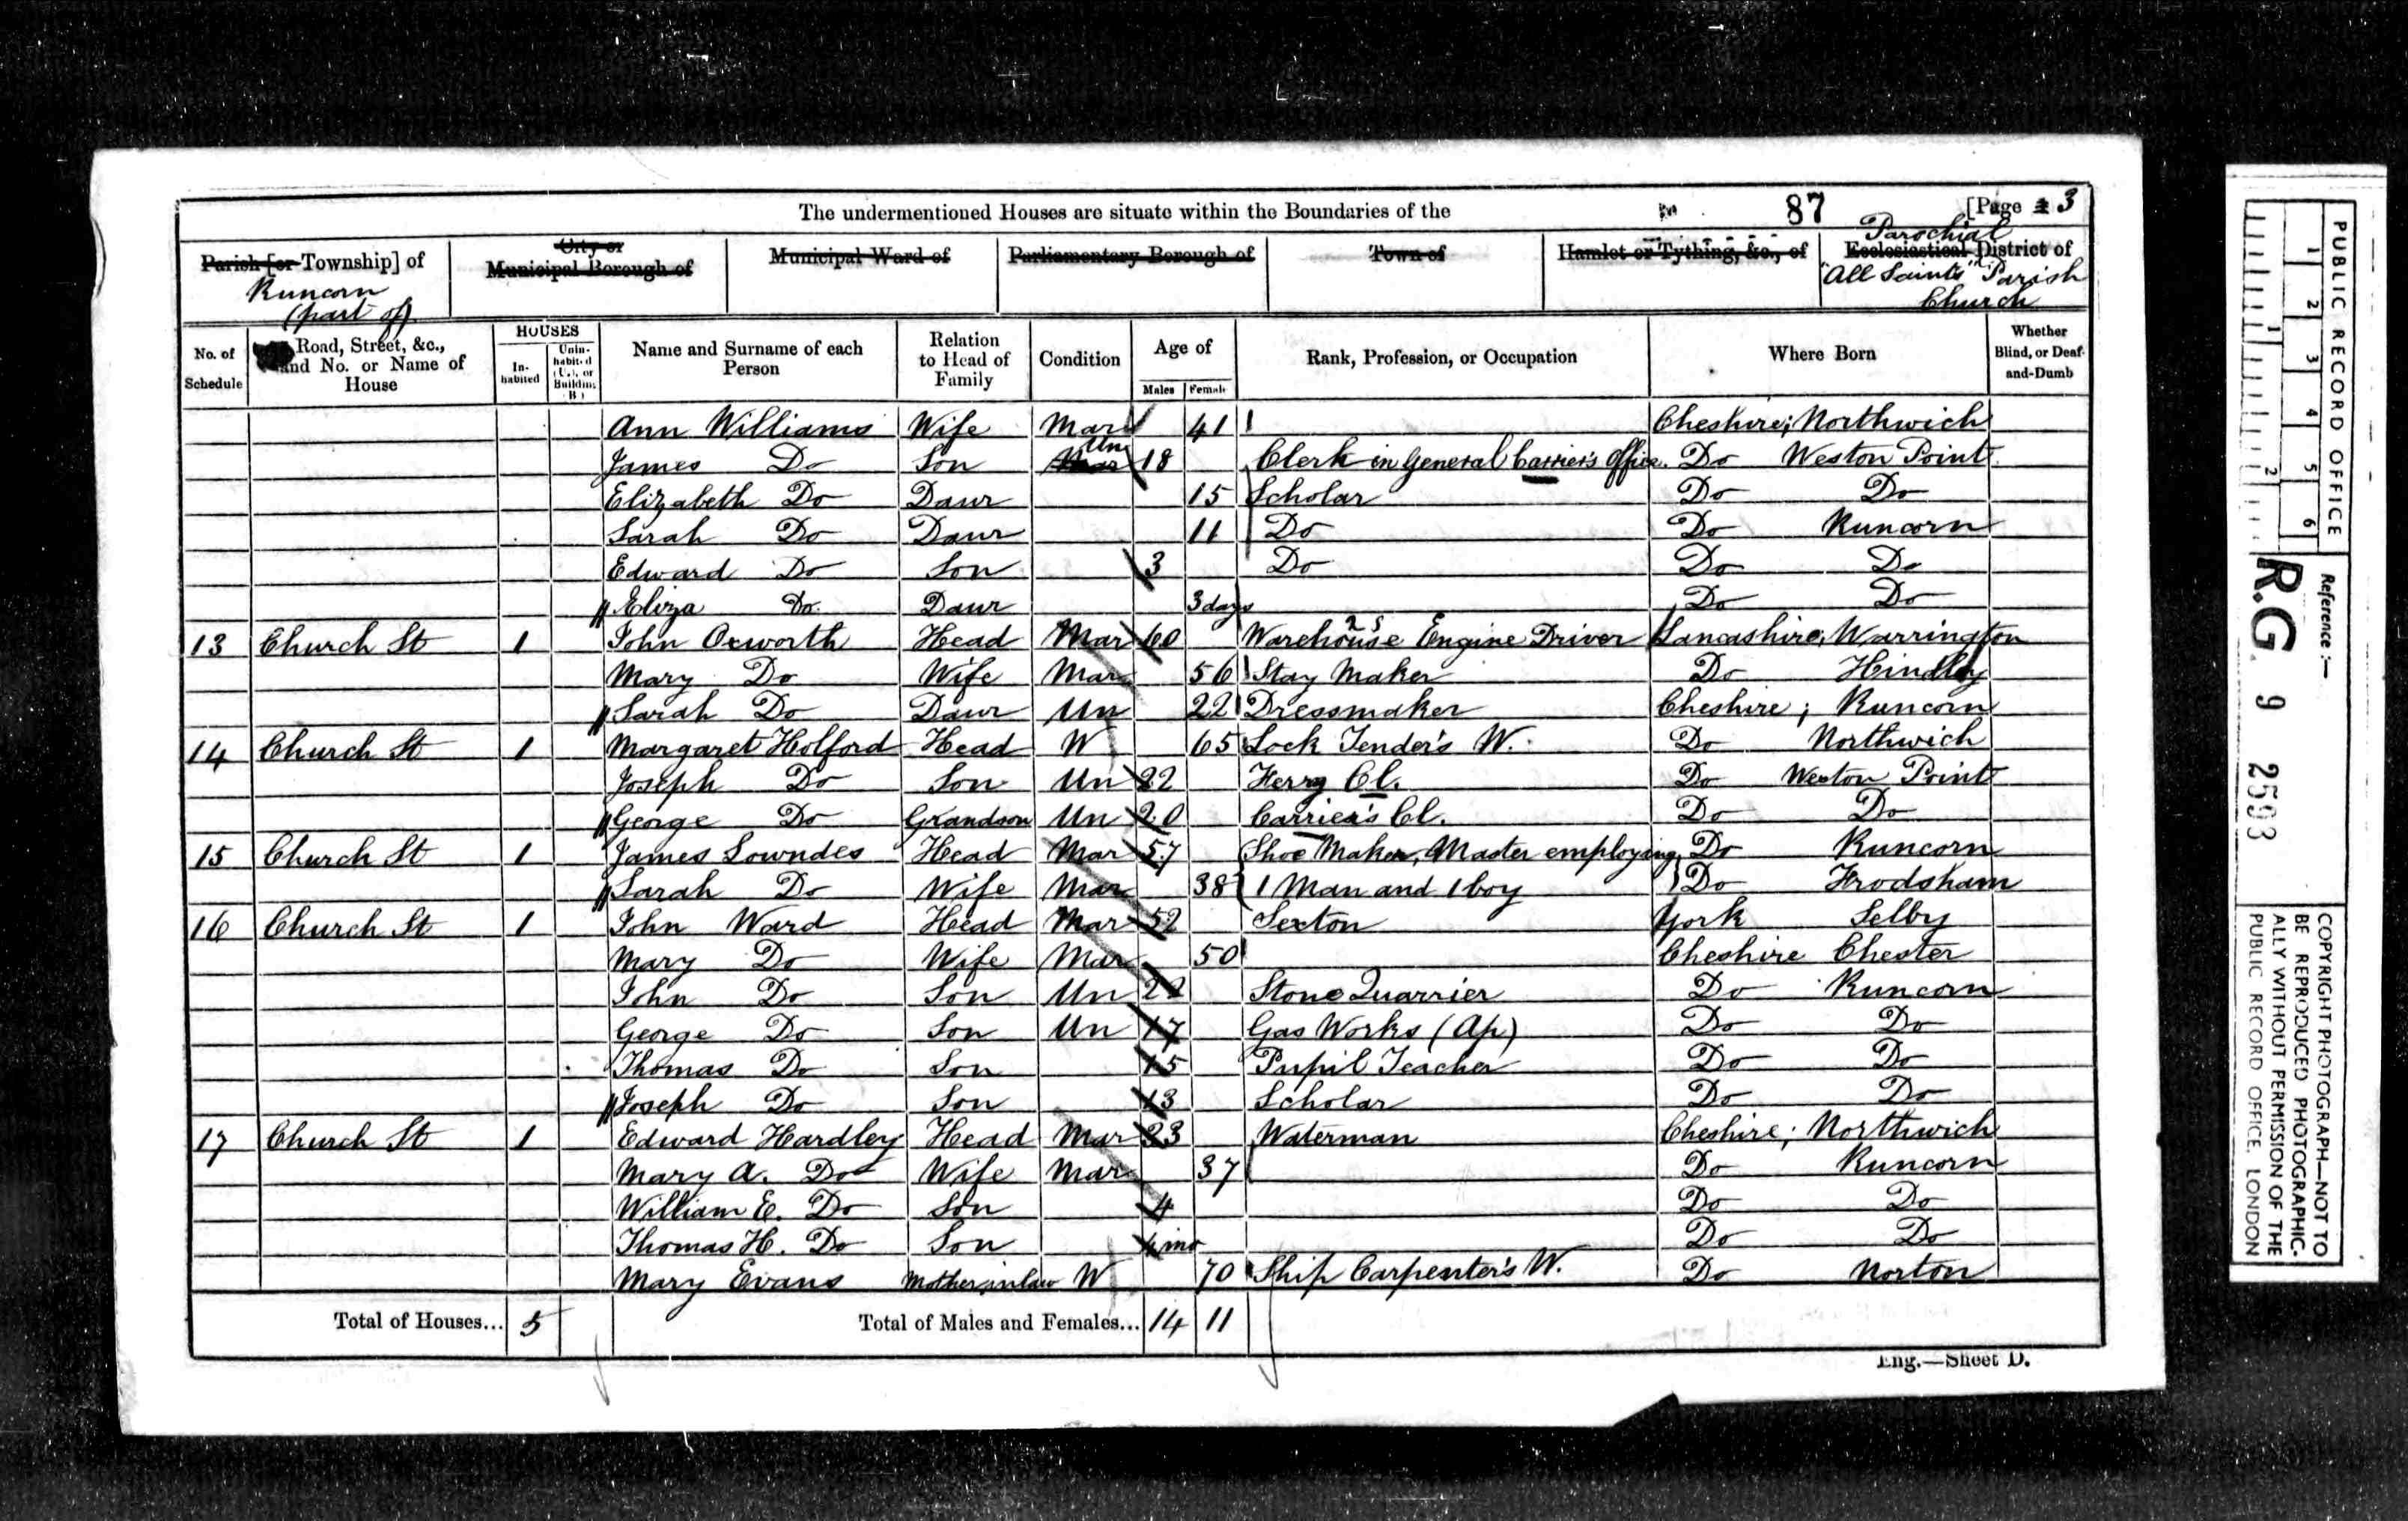 The undermentioned Houses are situate within the Boundaries of the 87 [Page 3
Parish [or Township] of City or Municipal Borough of Municipal Ward of Parliamentary Borough of Town of Hamlet or Tything, &c., of Parochial Ecclesiastical District of
Runcorn (part of) "All Saints" Parish Church
No. of Schedule Road, Street, &c., and No. or Name of House HOUSES Inhabited Uninhabited (U.), or Building (B) Name and Surname of each Person Relation to Head of Family Condition Age of Males Females Rank, Profession, or Occupation Where Born Whether Blind, or Deaf-and-Dumb
Ann Williams Wife Mar 41 Cheshire; Northwich
James Do Son Mar Un 18 Clerk in General Carrier's Office. Do Weston Point
Elizabeth Do Daur 15 Scholar Do Do
Sarah Do Daur 11 Do Do Runcorn
Edward Do Son 3 Do Do Do
Eliza Do. Daur 3 days Do Do
13 Church St 1 John Oxworth Head Mar 60 Warehouse Engine Driver Lancashire; Warrington
Mary Do Wife Mar 56 Stay Maker Do Hindley
Sarah Do Daur Un 22 Dressmaker Cheshire; Runcorn
14 Church St 1 Margaret Holford Head W 65 Lock Tender's W. Do Northwich
Joseph Do Son Un 22 Ferry Cl. Do Weston Point
George Do Grandson Un 20 Carrier's Cl. Do Do
15 Church St 1 James Lowndes Head Mar 57 Shoe Maker, Master employing Do Runcorn
Sarah Do Wife Mar 38 1 Man and 1 boy Do Frodsham
16 Church St 1 John Ward Head Mar 52 Sexton York Selby
Mary Do Wife Mar 50 Cheshire Chester
John Do Son Un 22 Stone Quarrier Do Runcorn
George Do Son Un 17 Gas Works (Ap) Do Do
Thomas Do Son 15 Pupil Teacher Do Do
Joseph Do Son 13 Scholar Do Do
17 Church St 1 Edward Hardley Head Mar 33 Waterman Cheshire; Northwich
Mary A. Do Wife Mar 37 Do Runcorn
William E. Do Son 4 Do Do
Thomas H. Do Son 4 mo Do Do
Mary Evans Mother in law W 70 Ship Carpenter's W. Do Norton
Total of Houses... 5 Total of Males and Females... 14 11
Eng.—Sheet D.
PUBLIC RECORD OFFICE
1 2 3 4 5 6
1 2
Reference :—
R.G. 9 2593
COPYRIGHT PHOTOGRAPH—NOT TO
BE REPRODUCED PHOTOGRAPHIC-
ALLY WITHOUT PERMISSION OF THE
PUBLIC RECORD OFFICE, LONDON